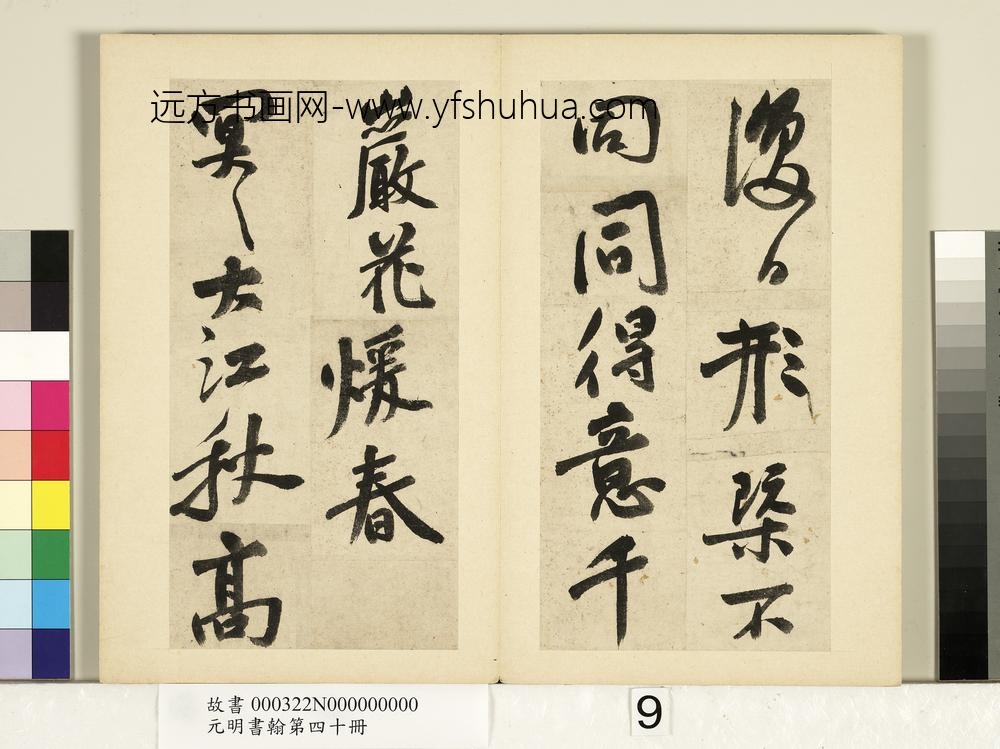 日形槩不
同得意千
巖花煖春
冥〻大江秋高
远方书画网-www.yfshuhua.com
故書 000322N000000000
元明書翰第四十冊
9